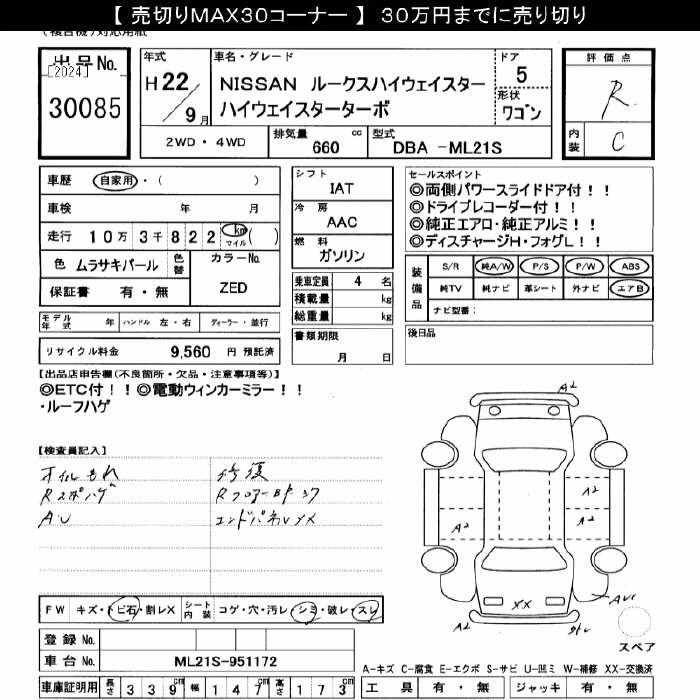 【 売切りMAX30コーナー 】 30万円までに売り切り
出品No.
[2024]
30085
年式
H22/9月
車名・グレード
NISSAN ルークスハイウェイスター
ハイウェイスターターボ
ドア
5
形状
ワゴン
2WD・4WD
排気量 660 cc
型式 DBA -ML21S
評価点
R
内装 C
車歴 自家用・( )
車検 年 月
走行 10万 3千 8 2 2 km マイル ( )
色 ムラサキパール 色替 カラーNo.
保証書 有・無 ZED
モデル年式 年 ハンドル 左・右 ディーラー・並行
リサイクル料金 9,560 円 預託済
シフト
IAT
冷房
AAC
燃料
ガソリン
乗車定員 4 名
積載量 kg
総重量 kg
書類期限
月 日
セールスポイント
◎両側パワースライドドア付！！
◎ドライブレコーダー付！！
◎純正エアロ・純正アルミ！！
◎ディスチャージH・フォグL！！
装備品 S/R 純A/W P/S P/W ABS
純TV 純ナビ 革シート 外ナビ エアB
ナビ型番：
後日品
【出品店申告欄(不良箇所・欠品・注意事項等)】
◎ETC付！！◎電動ウィンカーミラー！！
・ルーフハゲ
【検査員記入】
オイルもれ 修復
Rスポハゲ RフロアーBP 37
AU エンドパネルXX
A2
A2
A2
A2
XX
A2
AU1
スペア
FW キズ・トビ石・割レX シート内装 コゲ・穴・汚レ・シミ・破レ・スレ
登録No.
車台No. ML21S-951172
車庫証明用 長さ 3 3 9 cm 幅 1 4 7 cm 高さ 1 7 3 cm
A-キズ C-腐食 E-エクボ S-サビ U-凹ミ W-補修 XX-交換済
工具 有・無 ジャッキ 有・無